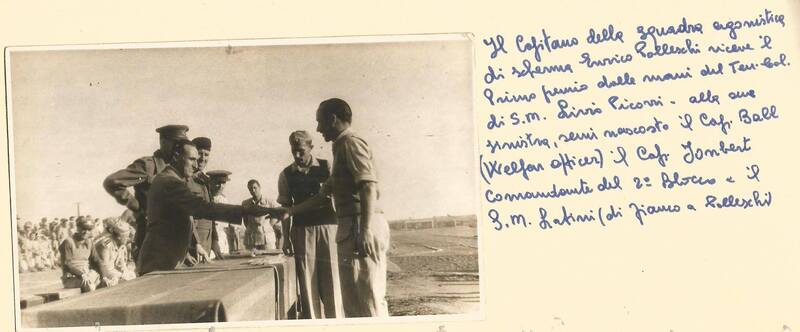 Il Capitano della squadra agonistica
di scherma Enrico Polleschi riceve il
Primo premio dalle mani del Ten. Col.
di S.M. Livio Picozzi - alla sua
sinistra, semi nascosto il Cap. Ball
(Welfar officer) il Cap. Jonbert
Comandante del 2º Blocco e il
S.M. Latini (di fianco a Polleschi)